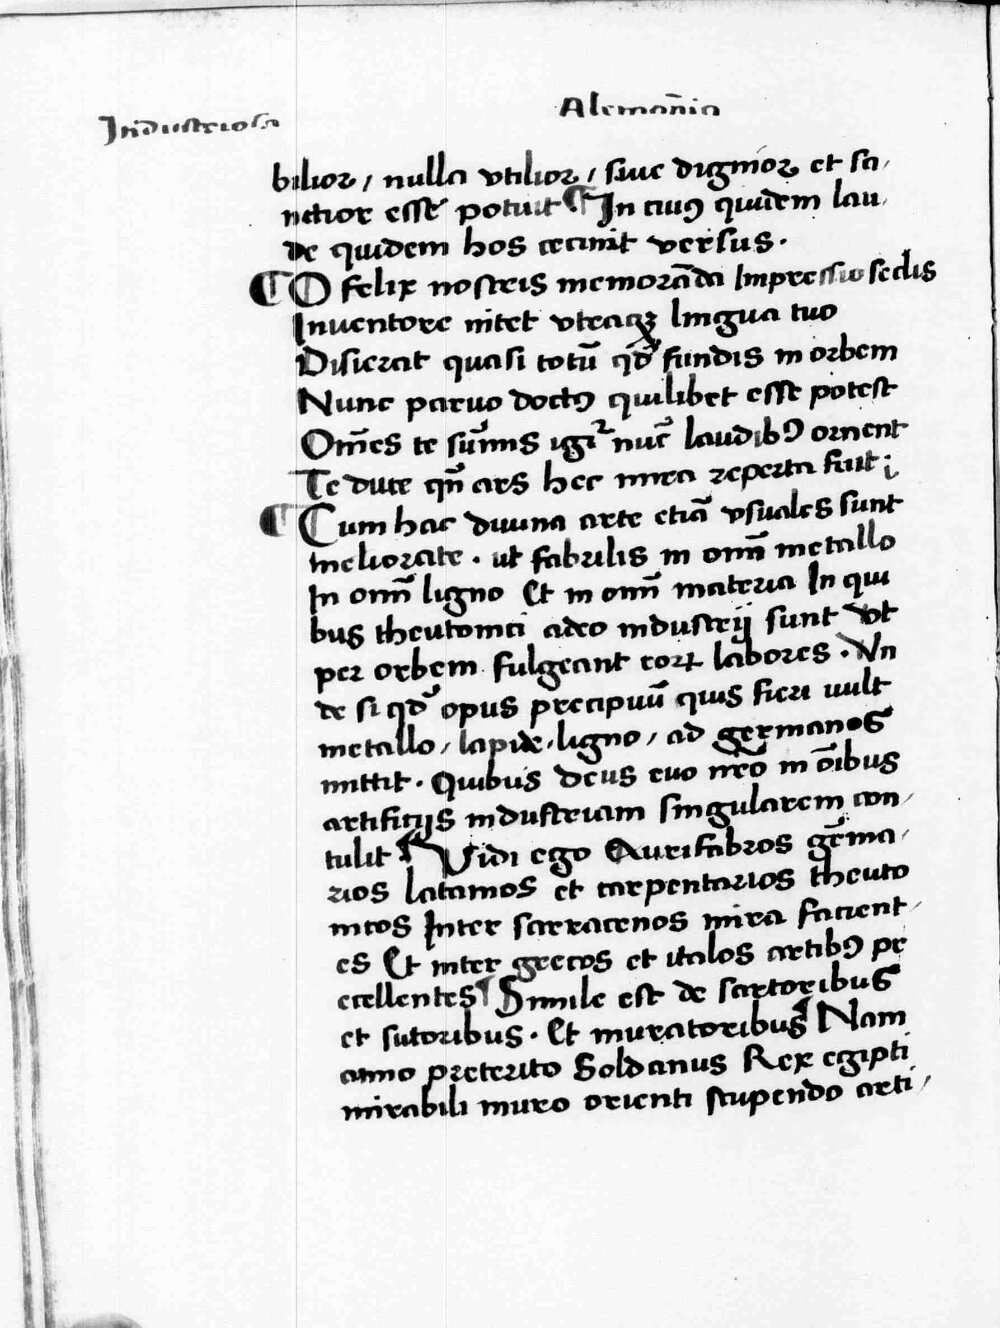 Industriosa
Alemañia
bilior / nulla vtilior / siue dignior et sa/
nctior esse potuit ¶ In cuiꝰ quidem lau
de quidem hos cecinit versus.
¶ O felix nostris memorāda Impressio seclis
Inuentore nitet vtraqꝫ lingua tuo
Disierat quasi totū qd̕ fundis in orbem
Nunc paruo doctꝰ quilibet esse potest
Om̄es te sum̄is igit² nūc laudibꝰ ornent
Te duce qn̄ ars hec mira reperta fuit ;
¶ Cum hac diuina arte etiā vsuales sunt
meliorate . ut fabrilis in omn̄ metallo
In omn̄ ligno Et in omn̄ materia In qui
bus theutonici adeo industrij sunt vt
per orbem fulgeant eoꝝ labores . Vn
de si qd̕ opus precipuū quis fieri uult
metallo / lapide . ligno / ad germanos
mittit . Quibus deus euo nr̄o in oībus
artificijs industriam singularem con/
tulit ¶ Vidi ego Aurifabros ger̄ma/
rios latamos et carpentarios theuto
nicos Inter sarracenos mira facient/
es Et inter grecos et italos artibꝰ pr
ecellentes ¶ Simile est de sartoribus
et sutoribus . Et muratoribus ¶ Nam
anno preterito Soldanus Rex egipti
mirabili muro orienti stupendo arti/